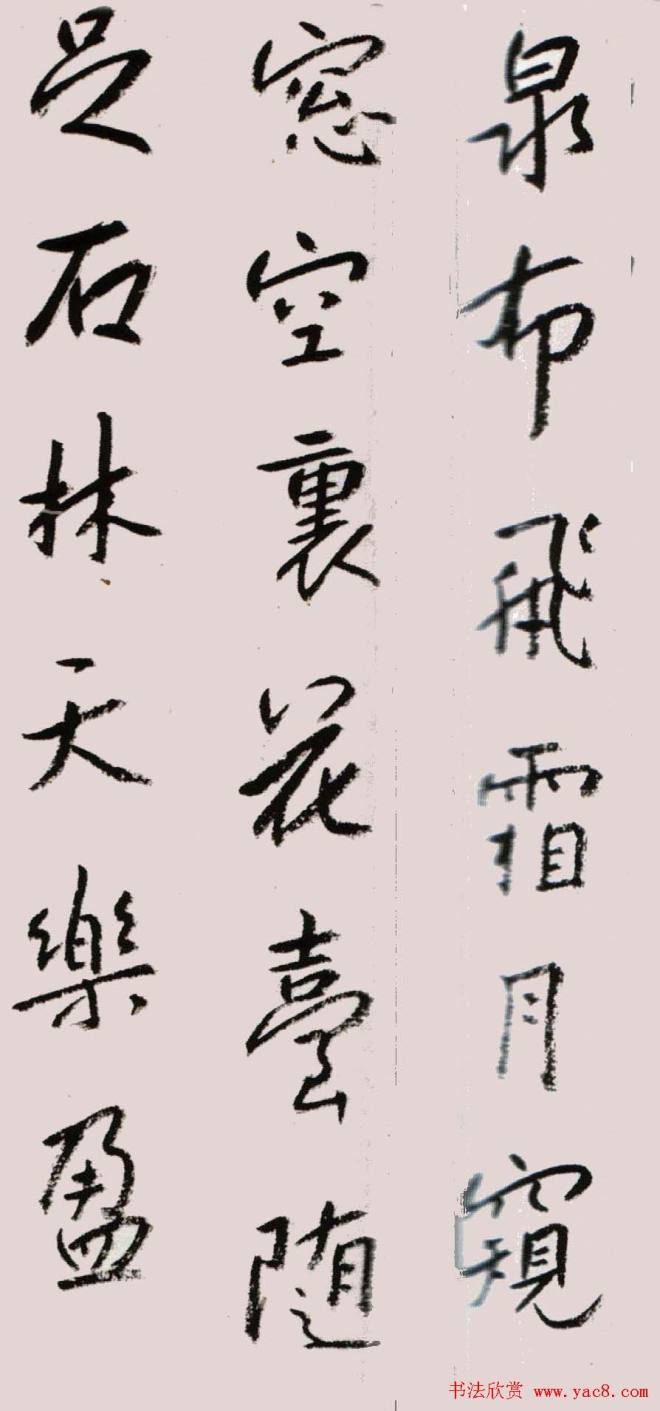 泉布飛霜月窺
窓空裏花臺随
足石林天樂盈
书法欣赏 www.yac8.com